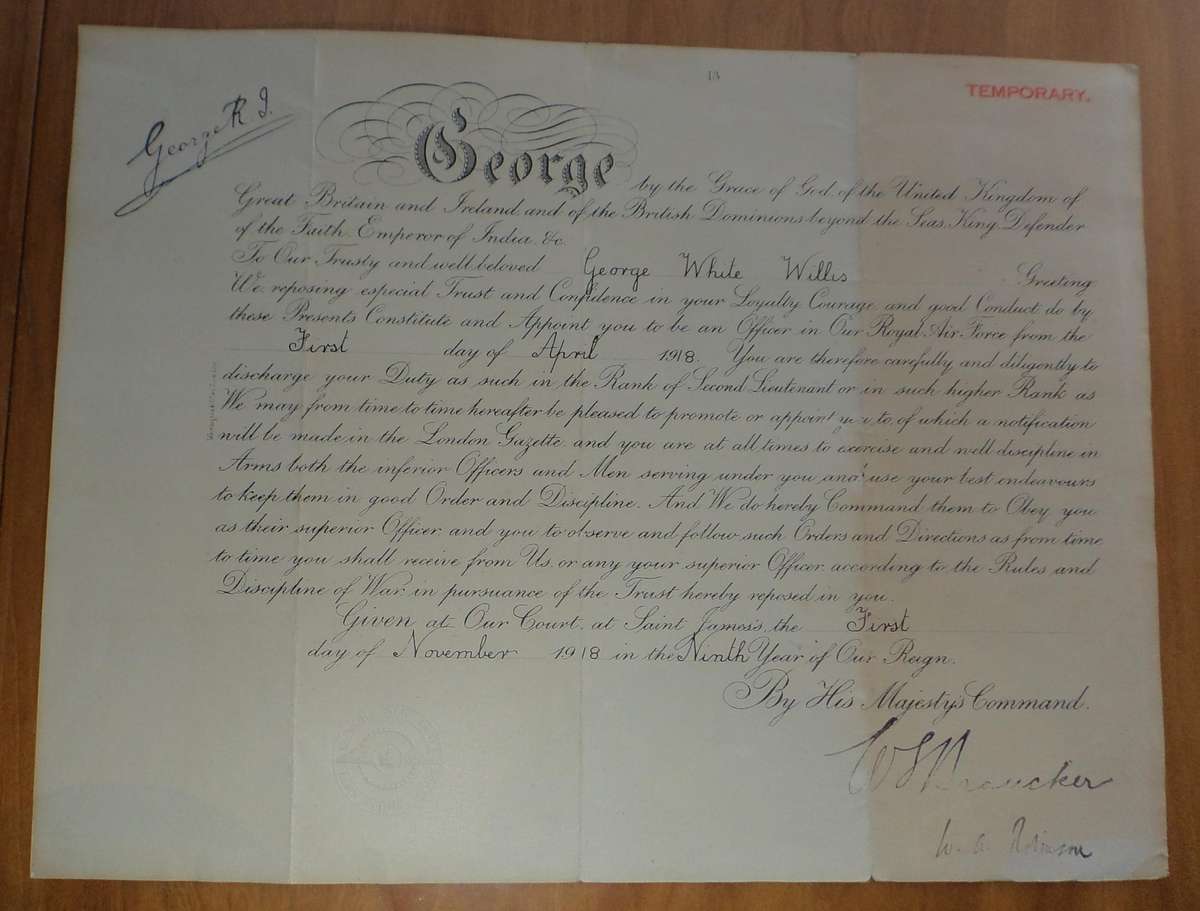 18
TEMPORARY.
George R. I.
George by the Grace of God, of the United Kingdom of
Great Britain and Ireland, and of the British Dominions beyond the Seas, King, Defender
of the Faith, Emperor of India, &c.
To Our Trusty and well beloved George White Willis Greeting
We, reposing especial Trust and Confidence in your Loyalty, Courage, and good Conduct, do by
these Presents Constitute and Appoint you to be an Officer in Our Royal Air Force from the
First day of April 1918. You are therefore carefully and diligently to
discharge your Duty as such in the Rank of Second Lieutenant or in such higher Rank as
We may from time to time hereafter be pleased to promote or appoint you to, of which a notification
will be made in the London Gazette, and you are at all times to exercise and well discipline in
Arms both the inferior Officers and Men serving under you and use your best endeavours
to keep them in good Order and Discipline. And We do hereby Command them to Obey you
as their superior Officer, and you to observe and follow such Orders and Directions as from time
to time you shall receive from Us, or any your superior Officer, according to the Rules and
Discipline of War, in pursuance of the Trust hereby reposed in you.
Given at Our Court, at Saint James's, the First
day of November 1918 in the Ninth Year of Our Reign.
By His Majesty's Command.
W. A. Robinson